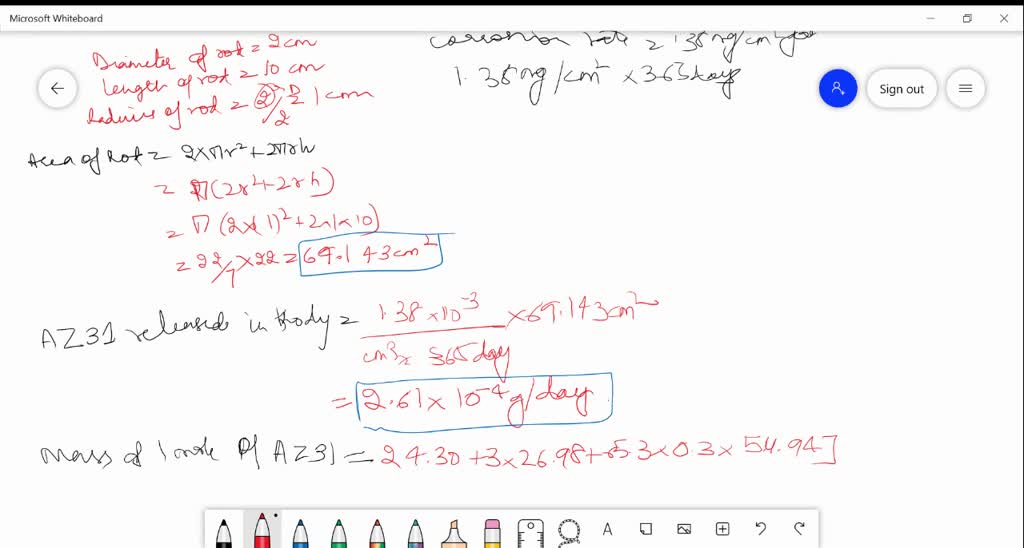 Microsoft Whiteboard
Diameter of rod = 2 cm
Length of rod = 10 cm
Radius of rod = 2/2 1 cm
corrosion rate = 1.38 mg/cm²
1.38 mg/cm² × 365 days
Sign out
Area of rod = 2×πr² + 2πrh
= π(2r²+2rh)
= π(2×(1)²+2×1×10)
= 22/7 × 22 = 69.143cm²
AZ31 released in body = 1.38 ×10⁻³ × 69.143cm²
cm² × 365 day
= 2.61 × 10⁻⁴ g/day
Mass of 1 mole of AZ31 = 24.30 + 3×26.98 + 0.3× 54.94]
A